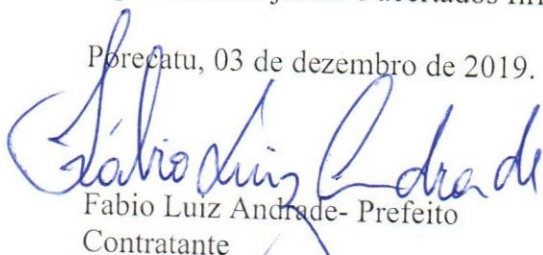 acertados
Porecatu, 03 de dezembro de 2019.
Fábio Luiz Andrade
Fabio Luiz Andrade- Prefeito
Contratante